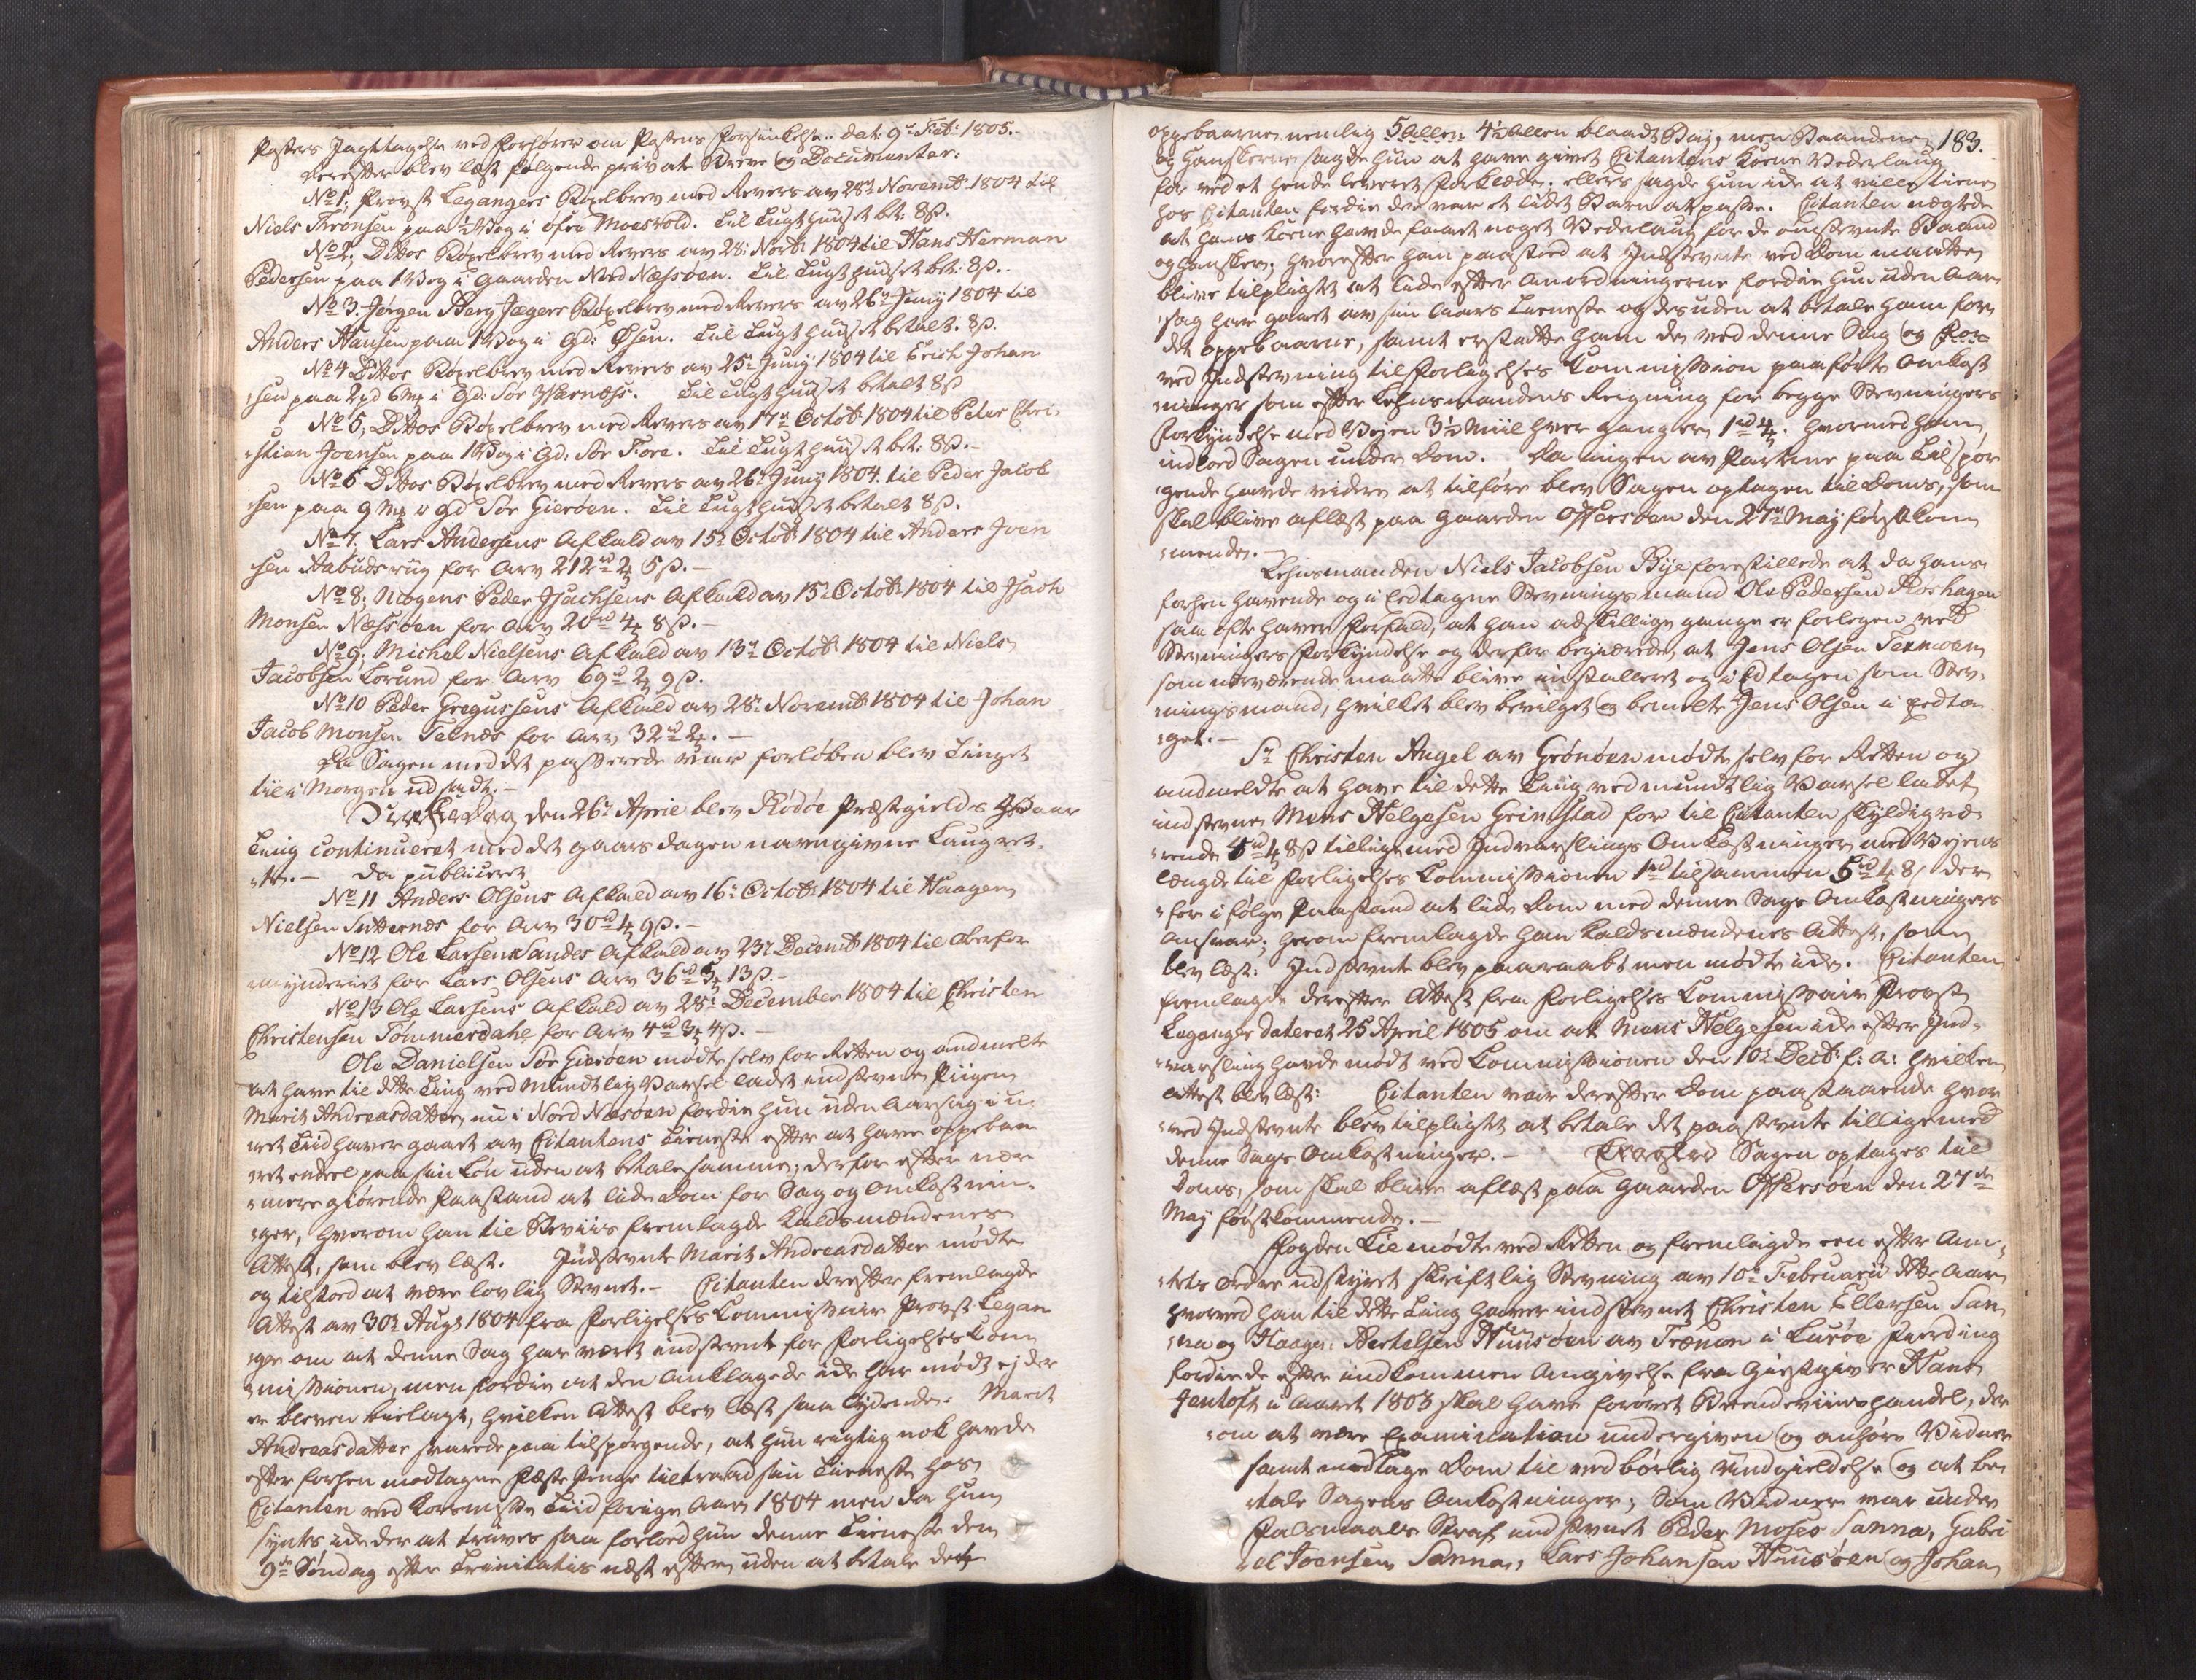 Posters Jagttagelse ved Forhører om Postens Forsinkelse. dat: 9de Feb: 1805.
derefter blev læst følgende private Breve og Documenter:
No 1, Provst Legangers Bøxelbrev med Revers av 28de Novembr 1804 til
Niels Thronsen paa ½ Vog i øfre Moesvold. Til Tugthuuset bt: 8 s.
No 2, Dittos Bøxelbrev med Revers av 28: Novbr 1804 til Hans Herman
Pedersen paa 1 Vog i Gaarden Nord Næsøen. Til Tugthuuset bt: 8 s.
No 3. Jørgen Berg Jægers Bøxelbrev med Revers av 26de Juny 1804 til
Anders Hansen paa 1 Vog i Gd: Øjsen. Til Tugthuuset betalt. 8 s.
No 4 Dittos Bøxelbrev med Revers av 25: Juny 1804 til Erich Johan
sen paa 2 pd 6 mk i Gd: Sør Værnæs. Til Tugthuuset betalt 8 s
No 5, Dittos Bøxelbrev med Revers av 17de Octobr 1804 til Peter Chri-
stian Joensen paa 1 Vog i Gd: Sør Fore. Til Tugthuuset bt: 8 s.
No 6 Dittos Bøxelbrev med Revers av 26: Juny 1804. til Peder Jacob
sen paa 9 mk i Gd Sør Gierøen. Til Tugthuuset betalt 8 s.
No 7. Lars Andersens Afkald av 15: Octobr 1804 til Anders Joen
sen Aabudsvig for Arv 212 rd 2 5 s.
No 8, Nogens Peder Isachsens Afkald av 15: Octobr 1804 til Isach
Monsen Næsøen for Arv 20 rd 4 8 s.
No 9, Michel Nielsens Afkald av 13de Octobr 1804 til Niels
Jacobsen Lorund for Arv 69 rd 2 9 s.
No 10 Peder Gregussens Afkald av 28: Novembr 1804 til Johan
Jacob Monsen Telnæs for Arv 32 rd 2.
Da Sagen med det passerede var forløben blev Tinget
til i Morgen udsadt.
Dingsdag den 26: April blev Rødøe Præstgields Vaar
Ting continueret med det gaarsdagen navngivne Laugret-
te. Da publiceret
No 11 Anders Olsens Afkald av 16: Octobr 1804 til Haagen
Nielsen Selternæs for Arv 30 rd 4 9 s.
No 12 Ole Larsens Sandes Afkald av 23: Decembr 1804 til Overfor
mynderiet for Lars Olsens Arv 36 rd 5 13 s.
No 13 Ole Larsens Afkald av 28: December 1804 til Christen
Christensen Tømmerdahl for Arv 4 rd 3 4 s.
Ole Danielsen Sør Gierøen mødte selv for Retten og andmelte
at have til dette Ting ved Mundtlig Varsel ladet indstevne Piigen
Marit Andreasdatter, nu i Nord Næsøen fordie hun uden Aarsag i u-
ret Tiid haver gaaet av Citantens Tieneste efter at have oppebaa
ret endeel paa sin Løn uden at betale samme, derfor efter nær
mere giørende Paastand at lide Dom for Sag og Omkostnin-
ger, hvorom han til Beviis fremlagde Kaldsmændenes
Attest, som blev læst. Indstevnte Marit Andreasdatter mødte
og tilstoed at være lovlig Stevnet. Citanten derefter fremlagde
Attest av 30: Aug: 1804 fra Forligelses Commissair Provst Legan
ger om at denne Sag har været indstevnt for Forligelses Com
missionen, men fordie at den Anklagede icke har mødt ej der
er bleven bielagt, hvilken Attest blev læst saa lydende: Marit
Andreasdatter svarede paa tilspørgende, at hun rigtig nok havde
efter forhen modtagne Fæste Penge tiltraad sin Tieneste hos
Citanten ved Korsmisse Tiid forige Aar 1804 men da hun
syntes icke der at trives saa forlod hun denne Tieneste den
9de Søndag efter Trinitatis næst efter uden at betale dette
oppebaarne nemlig 5 Allen 4½ Allen blaadt Baj, men Baandene 183.
og Handskerne sagde hun at have givet Citantens Kone Vederlaug
for ved et hende leveret Forklæde. Ellers sagde hun icke at ville tiene
hos Citanten fordie der var et lidet Barn at passe. Citanten nægtede
at hans Kone havde faaet noget Vederlaug for de omstevnte Baand
og Handsker; hvorefter han paastod at Indstevnte ved Dom maatte
blive tilpligtet at lide efter Anordningerne fordie hun uden Aar-
sag har gaaet av sin Aars Tieneste og desuden at betale ham for
det oppebaarne, samt erstatte ham de ved denne Sag og for
ved Indstevning til Forligelses Commission paaførte Omkost
ninger som efter Lehnsmandens Reigning for begge Stevningers
Forkyndelse med Vejen 3½ Miil hver gang er 1 rd 4. hvormed han
indlod Sagen under Dom. Da ingen av Parterne paa Tilspør
gende havde videre at tilføre blev Sagen optagen til Doms, som
skal blive aflæst paa Gaarden Offersøen den 27de May førstkom
mende.
Lehnsmanden Niels Jacobsen Bye forestillede at da hans
forhen havende og i Eed tagne Stevningsmand Ole Pedersen Roshagen
saa ofte haver Forfald, at han adskillige gange er forlegen ved
Stevningers Forkyndelse og derfor begiærede, at Jens Olsen Tenmoen
som nærværende maatte blive installeret og i Ed tagen som Stev-
ningsmand, hvilket blev bevilget og bemelte Jens Olsen i Eed ta
get.
Sr Christen Angel av Grønøen mødte selv for Retten og
andmeldte at have til dette Ting ved mundtlig Varsel ladet
indstevne Mons Helgesen Grimstad for til Citanten skyldigvæ-
rende 4 rd 4 8 s tillige med Indvarslings Omkostninger med Vejens
længde til Forligelses Commissionen 1 rd tilsammen 5 rd 4 8 s der
for i følge Paastand at lide Dom med denne Sags Omkostningers
Ansvar; herom fremlagde han Kaldsmændenes Attest, som
blev læst: Indstevnte blev paaraabt men mødte icke. Citanten
fremlagde derefter Attest fra Forligelses Commissair Provst
Leganger dateret 25 April 1805 om at Mons Helgesen icke efter Ind-
varsling havde mødt ved Commissionen den 10: Decbr f: A: hvilken
Attest blev læst: Citanten var derefter Dom paastaaende hvor
ved Indstevnte blev tilpligtet at betale det paastevnte tilligemed
denne Sags Omkostninger. Eragtet Sagen optages til
Doms, som skal blive aflæst paa Gaarden Offersøen den 27de
May førstkommende.
Fogden Lie mødte ved Retten og fremlagde een efter Am-
tets Ordre udstyret skriftlig Stevning av 10: Februarii dette Aar
hvorved han til dette Ting haver indstevnet Christen Ellersen San
na og Haagen Hertelsen Huusøen av Trænen i Lurøe Fierding
fordie de efter indkommen Angivelse fra Giestgiver Hans
Jentoft i Aaret 1803 skal have forøvet Brændeviinshandel, der
om at være Examination undergiven og anhøre Vidner
samt modtage Dom til vedbørlig Undgieldelse og at be
tale Sagens Omkostninger; Som Vidner var under
Falsmaals Straf indstevnt Peder Moses Sanna, Gabri
el Joensen Sanna, Lars Johansen Huusøen og Johan